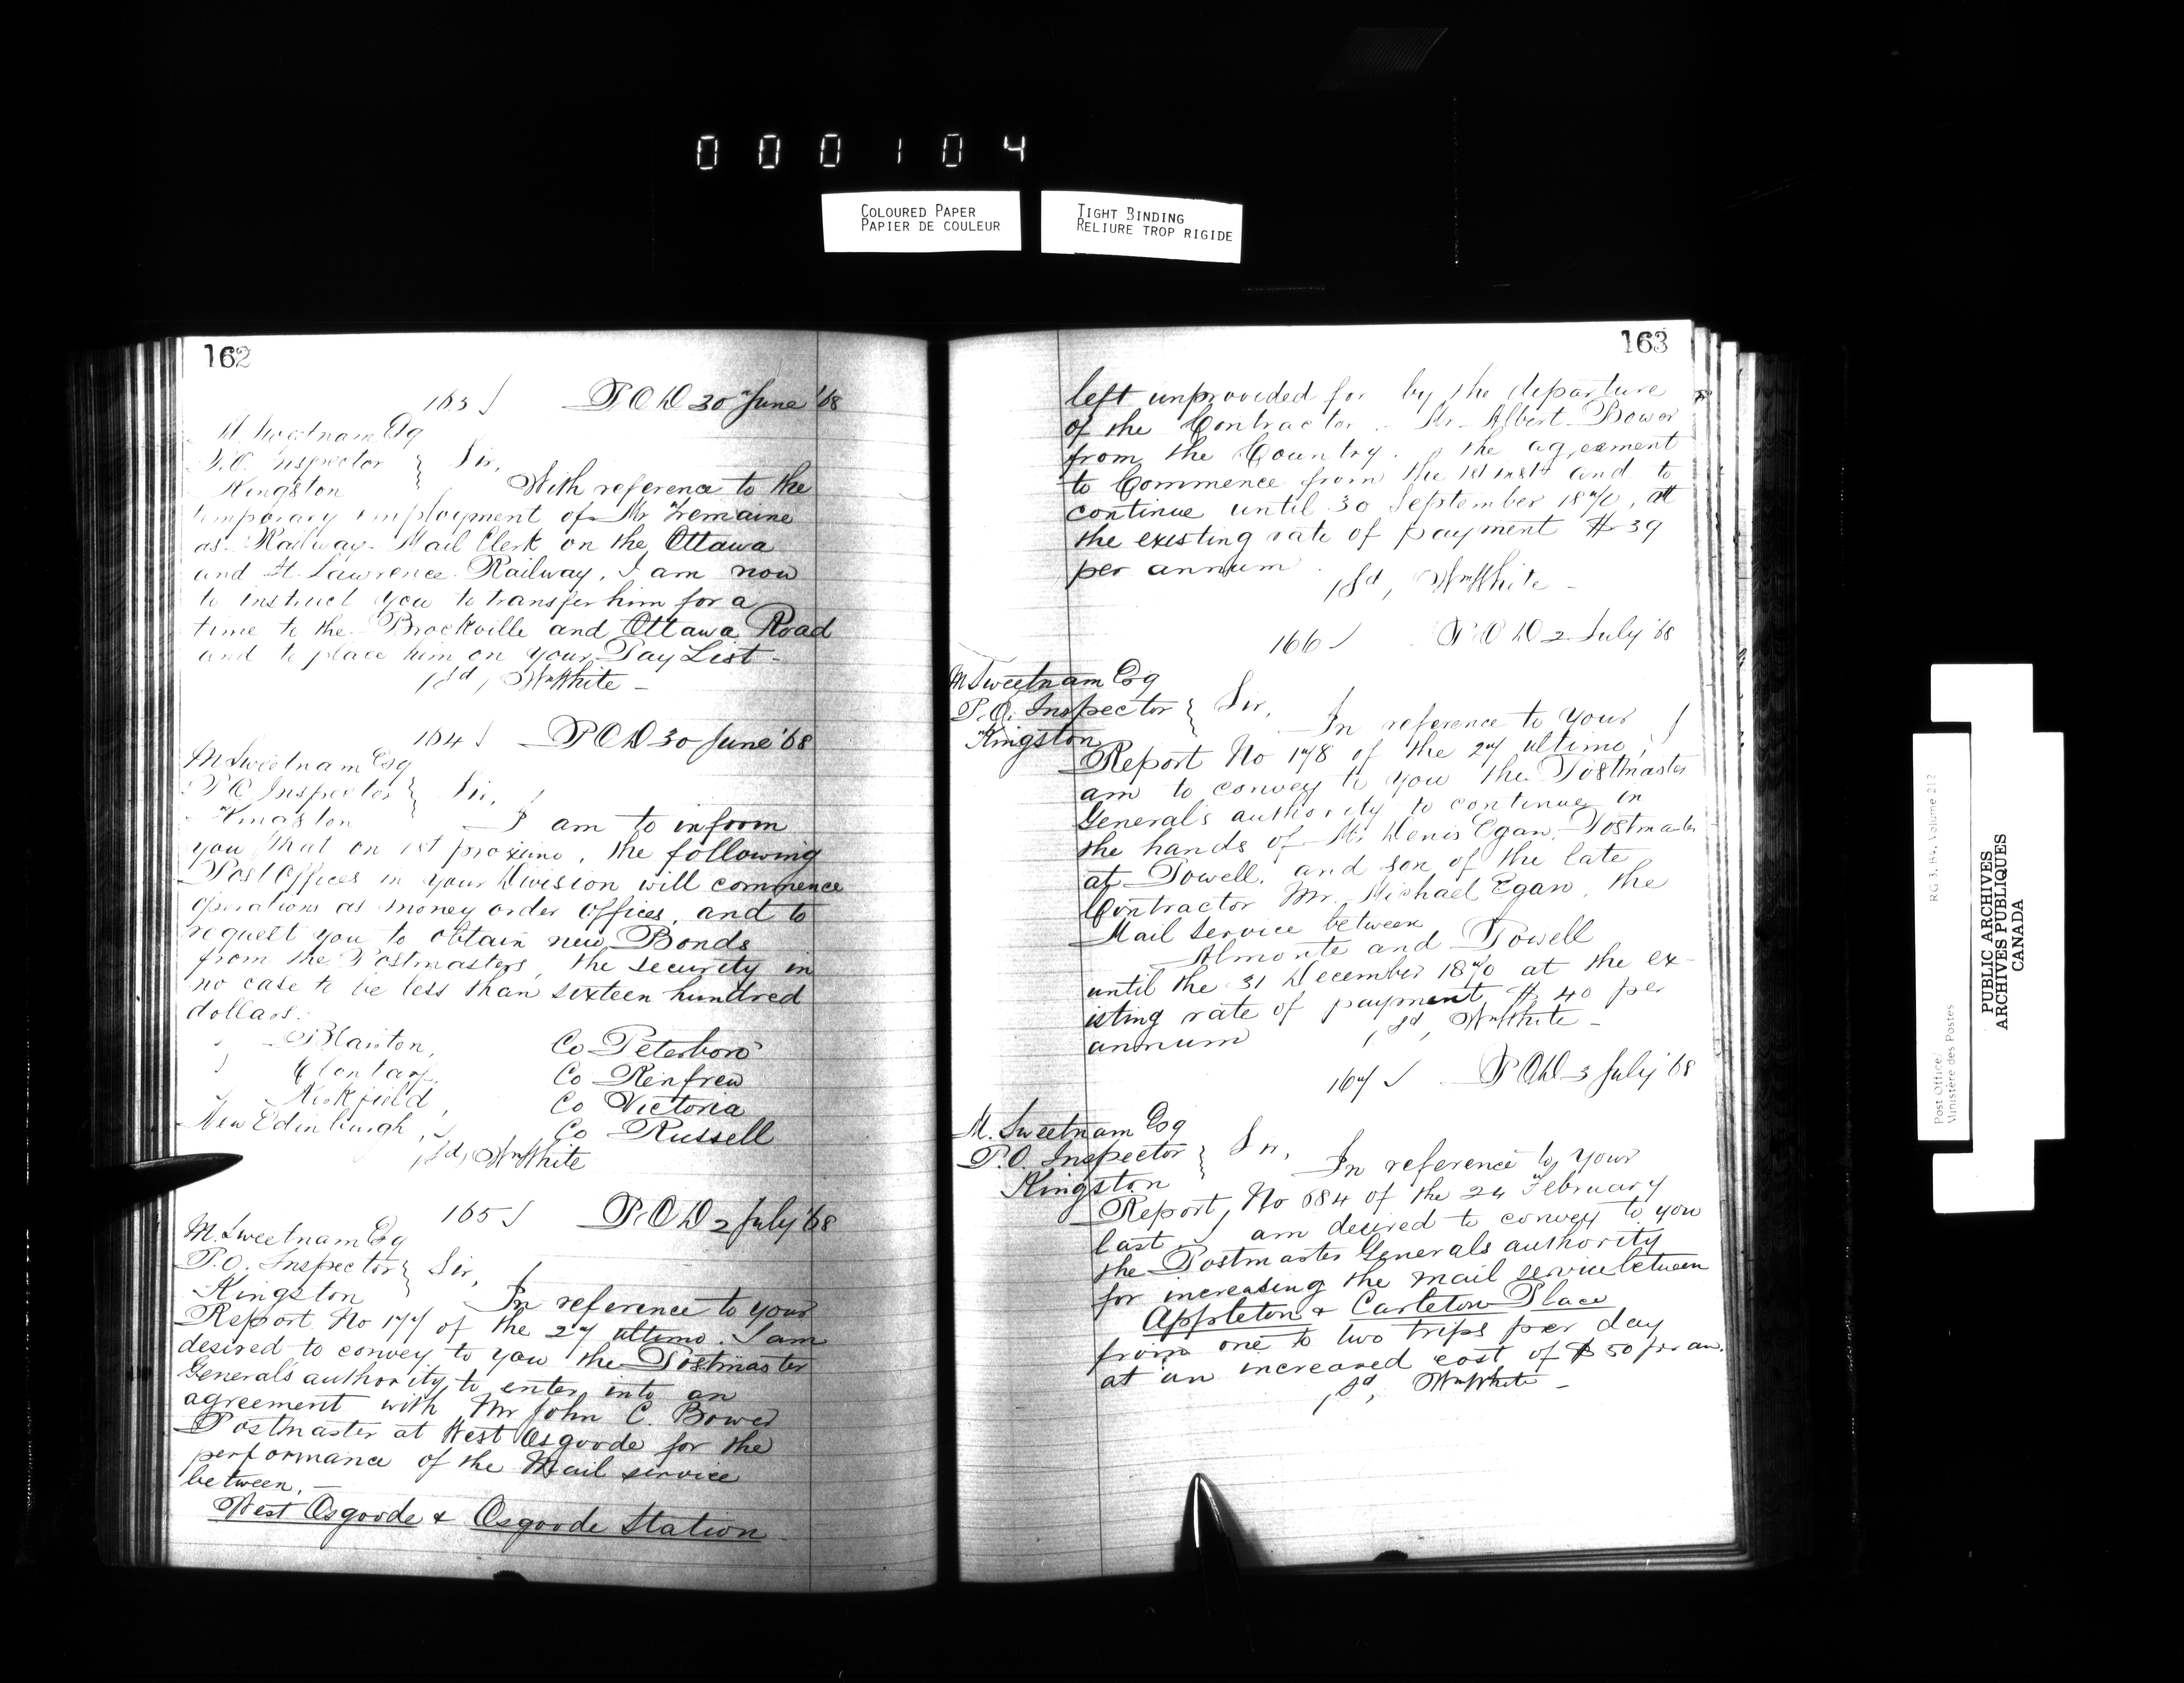 000104
COLOURED PAPER
PAPIER DE COULEUR
TIGHT BINDING
RELIURE TROP RIGIDE
162
163 P.O.D 30 June '68
M. Sweetnam Esq
P.O. Inspector } Sir,
Kingston
With reference to the
temporary employment of Mr Tremaine
as Railway Mail Clerk on the Ottawa
and St. Lawrence Railway, I am now
to instruct you to transfer him for a
time to the Brockville and Ottawa Road
and to place him on your Pay List -
Sd, Wm White -
164 P.O.D 30 June '68
M Sweetnam Esq
P.O. Inspector } Sir,
Kingston
I am to inform
you that on 1st proximo, the following
Post Offices in your Division will commence
operations as money order Offices, and to
request you to obtain new Bonds
from the Postmasters, the security in
no case to be less than sixteen hundred
dollars.
Co Peterboro'
Co Renfrew
Kirkfield, Co Victoria
New Edinburgh, Co Russell
Sd, Wm White
165 P.O.D 2 July '68
M. Sweetnam Esq
P.O. Inspector } Sir,
Kingston
In reference to your
Report No 177 of the 27 ultimo. I am
desired to convey to you the Postmaster
General's authority to enter into an
agreement with Mr John C. Bower
Postmaster at West Osgoode for the
performance of the Mail service
between. -
West Osgoode & Osgoode Station
163
left unprovided for by the departure
of the Contractor Mr Albert Bower
from the Country. the agreement
to Commence from the 1st inst and to
continue until 30 September 1870, at
the existing rate of payment $39
per annum.
Sd, Wm White -
166 P.O.D 2 July '68
M Sweetnam Esq
P.O. Inspector } Sir,
Kingston
In reference to your
Report No 178 of the 27 ultimo, I
am to convey to you the Postmaster
General's authority to continue in
the hands of Mr Denis Egan, Postmaster
at Powell, and son of the late
Contractor Mr. Michael Egan, the
Mail Service between
Almonte and Powell
until the 31 December 1870 at the ex-
isting rate of payment, $40 per
annum
Sd, Wm White -
167 P.O.D 3 July '68
M. Sweetnam Esq
P.O. Inspector } Sir,
Kingston
In reference to your
Report, No 684 of the 24 February
last I am desired to convey to you
the Postmaster Generals authority
for increasing the mail service between
Appleton & Carleton Place
from one to two trips per day
at an increased cost of $50 per an.
Sd, Wm White -
Post Office/
Ministère des Postes
RG 3, B4, Volume 212
PUBLIC ARCHIVES
ARCHIVES PUBLIQUES
CANADA